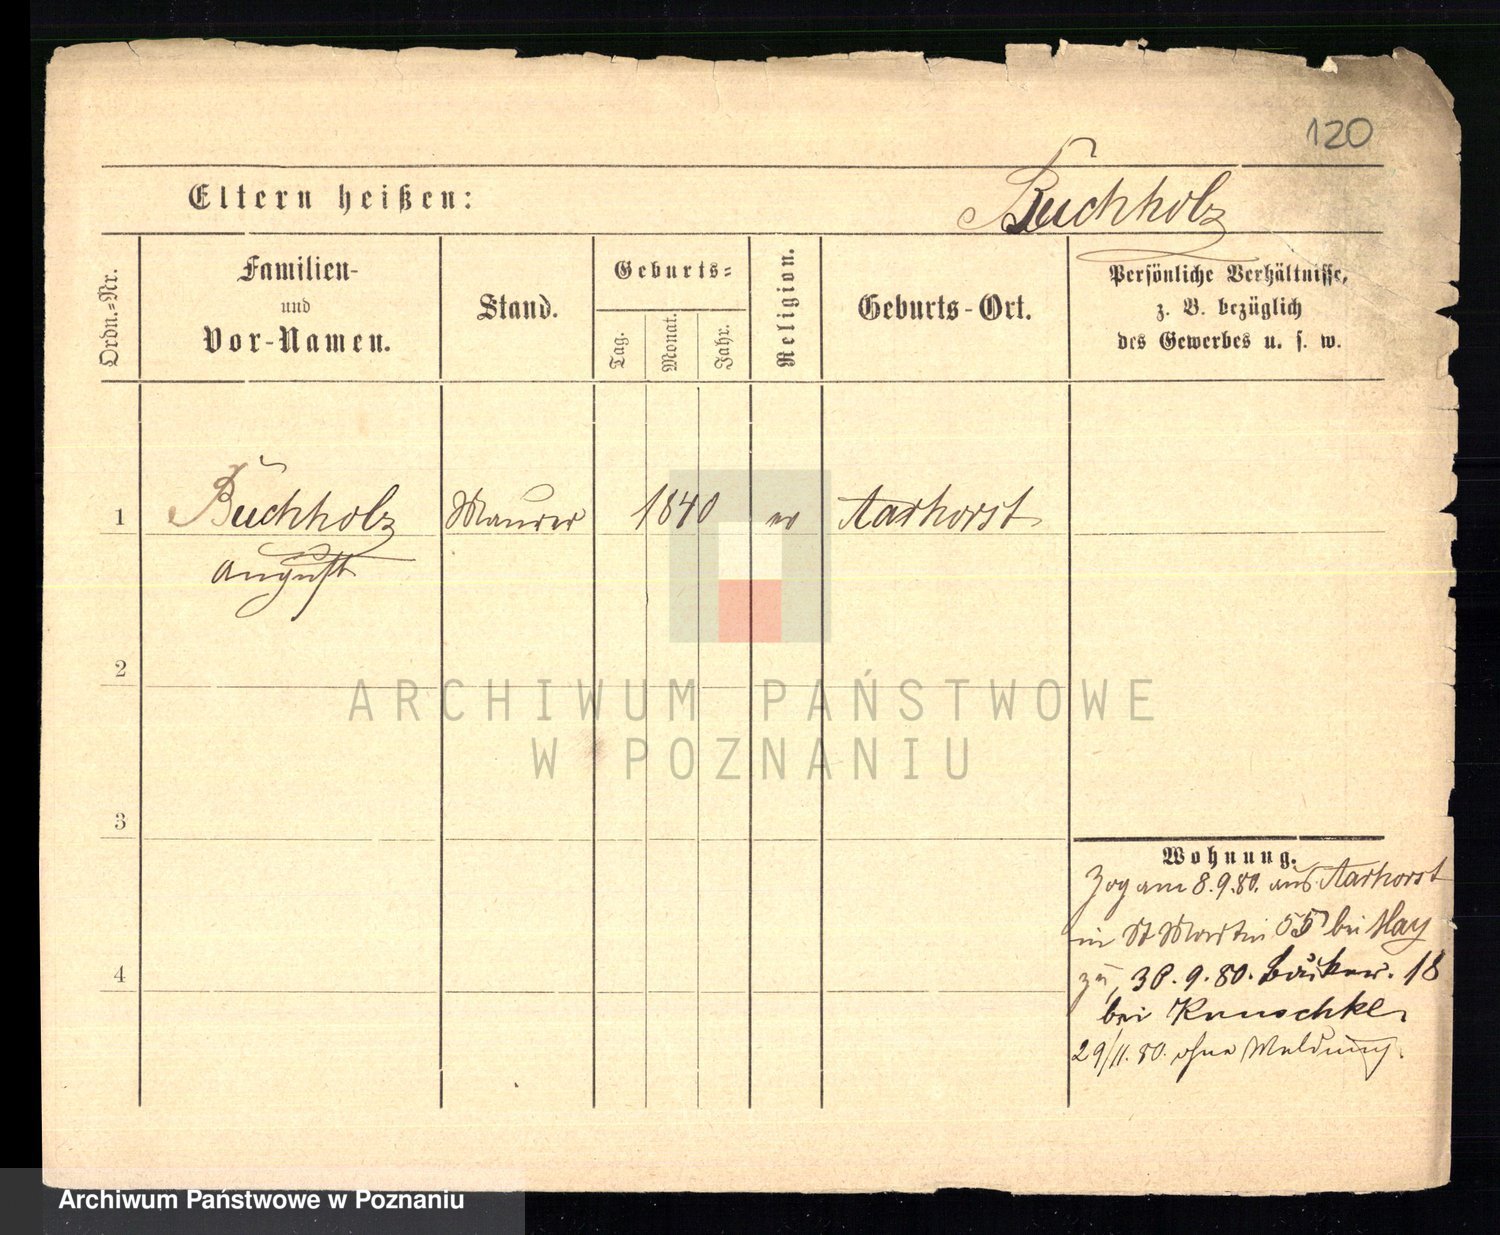 120
Eltern heißen:
Buchholz
Ordn.-Nr.
Familien-
und
Vor-Namen.
Stand.
Geburts-
Tag.
Monat.
Jahr.
Religion.
Geburts-Ort.
Persönliche Verhältnisse,
z. B. bezüglich
des Gewerbes u. s. w.
1
Buchholz
August
Maurer
1840
ev
2
ARCHIWUM PAŃSTWOWE
W POZNANIU
3
4
Wohnung.
Zog am 8.9.80. aus
in St Martin 55 bei May
30.9.80. 18
bei
29/11.80. ohne Meldung.
Archiwum Państwowe w Poznaniu